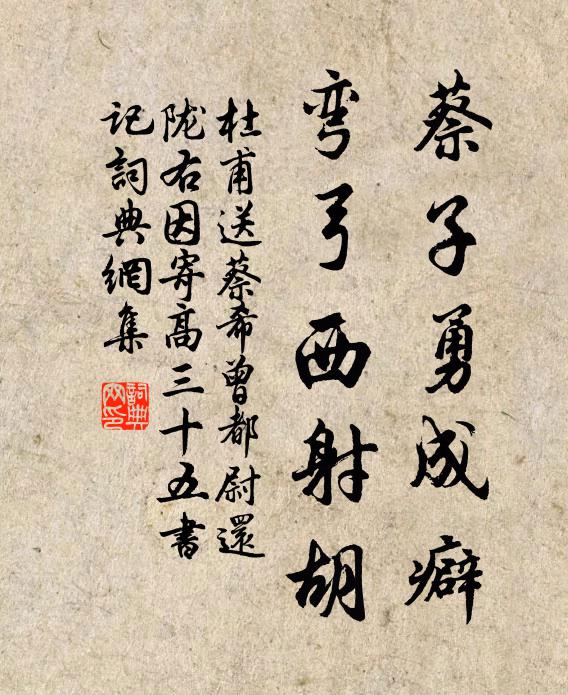 蔡子勇成癖
弯弓西射胡
杜甫送蔡希曾都尉還
陇右因寄高三十五書
記詞典網集
詞典
网印